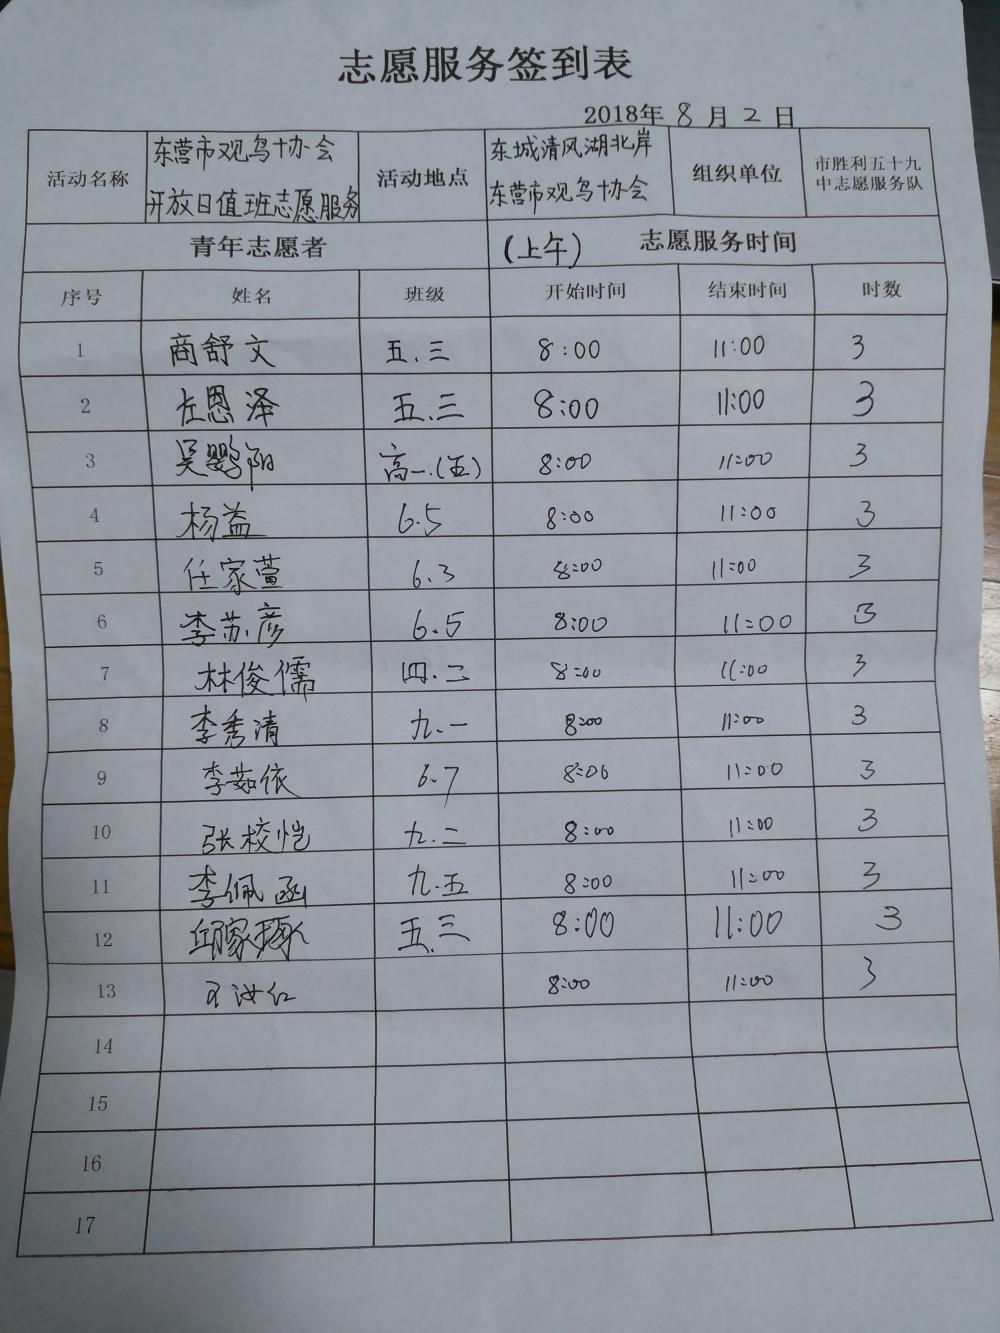 志愿服务签到表
2018年8月2日
活动名称 东营市观鸟协会 开放日值班志愿服务 活动地点 东城清风湖北岸 东营市观鸟协会 组织单位 市胜利五十九中志愿服务队
青年志愿者 (上午) 志愿服务时间
序号 姓名 班级 开始时间 结束时间 时数
1 商舒文 五.三 8:00 11:00 3
2 左恩泽 五.三 8:00 11:00 3
3 吴鹦阳 高一.(五) 8:00 11:00 3
4 杨益 6.5 8:00 11:00 3
5 任家萱 6.3 8:00 11:00 3
6 李苏彦 6.5 8:00 11:00 3
7 林俊儒 四.二 8:00 11:00 3
8 李秀清 九.一 8:00 11:00 3
9 李茹依 6.7 8:00 11:00 3
10 张校恺 九.二 8:00 11:00 3
11 李佩函 九.五 8:00 11:00 3
12 邱家 五.三 8:00 11:00 3
13 汝红 8:00 11:00 3
14
15
16
17